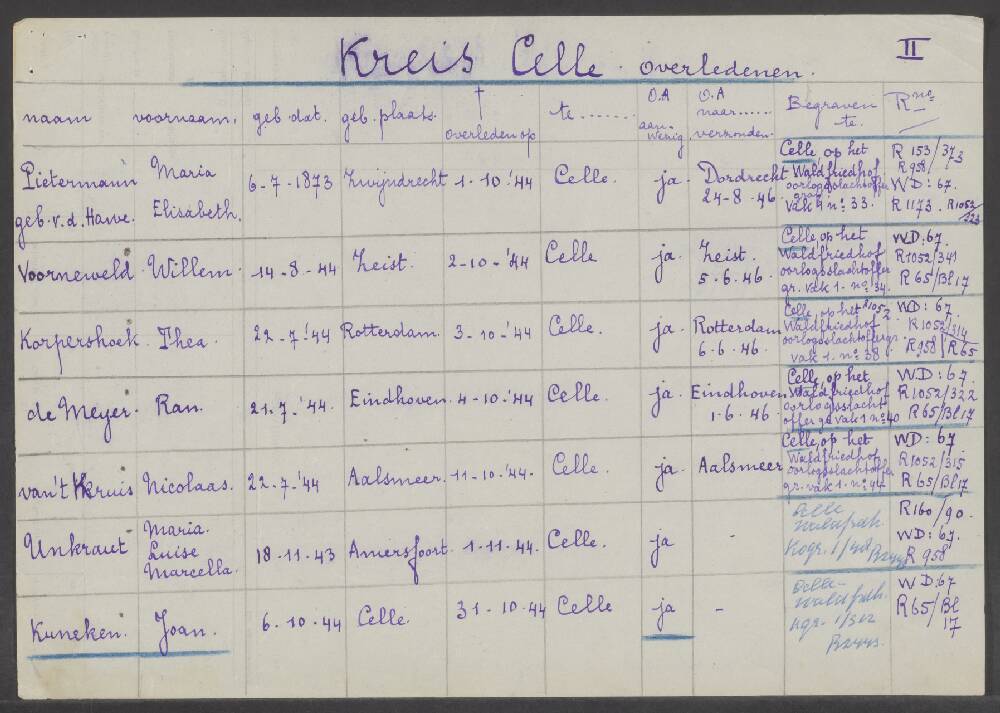 Kreis Celle. overledenen. II
naam voornaam. geb. dat. geb. plaats. † overleden op te ....... O.A aanwezig O.A naar...... verzonden. Begraven te. Rno.
Pietermann geb. v.d. Hawe. Maria Elisabeth. 6-7-1873 Zwijndrecht 1-10-'44 Celle. ja. Dordrecht 24-8-46.
Celle, op het
Waldfriedhof
oorlogsslachtoffer
vak 1 no. 33.
R 153/373
R 958/
WD: 67.
R 1173. R1052/323
Voorneveld. Willem. 14-8-44 Zeist. 2-10-'44 Celle ja. Zeist. 5-6-46.
Celle, op het
Waldfriedhof
oorlogsslachtoffer
gr. vak 1. no. 34.
WD: 67.
R1052/341
R 65/Bl 17
Korpershoek. Thea. 22-7-'44 Rotterdam. 3-10-'44 Celle. ja. Rotterdam 6-6-46.
Celle, op het R1052
Waldfriedhof
oorlogsslachtoffergr.
vak 1. no. 38.
WD: 67
R1052/314
R958/R65
de Meyer. Ran. 21-7-'44. Eindhoven. 4-10-'44 Celle. ja. Eindhoven 1-6-46.
Celle, op het
Waldfriedhof
oorlogsslacht
offer gr. vak 1 no. 40
WD: 67.
R1052/322
R65/Bl 17
van't Kruis Nicolaas. 22-7-'44 Aalsmeer. 11-10-'44. Celle. ja. Aalsmeer
Celle, op het
Waldfriedhof
oorlogsslachtoffer
gr. vak 1. no. 44.
WD: 67
R1052/315
R 65/Bl 17
Unkraut Maria. Luise Marcella. 18-11-43 Amersfoort. 1-11-44. Celle. ja -
Celle
Waldfrdh.
R160/90.
WD: 67.
R 958
Kuneken. Joan. 6-10-44 Celle. 31-10-44 Celle ja -
Celle-
Waldfrdh.
WD: 67
R65/Bl
17